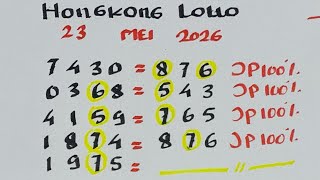 HONGKONG LOTTO
23 MEI 2026
7430 = 876 JP100%.
0368 = 543 JP100%.
4159 = 765 JP100%.
1874 = 876 JP100%.
1975 = ____ 11 ____